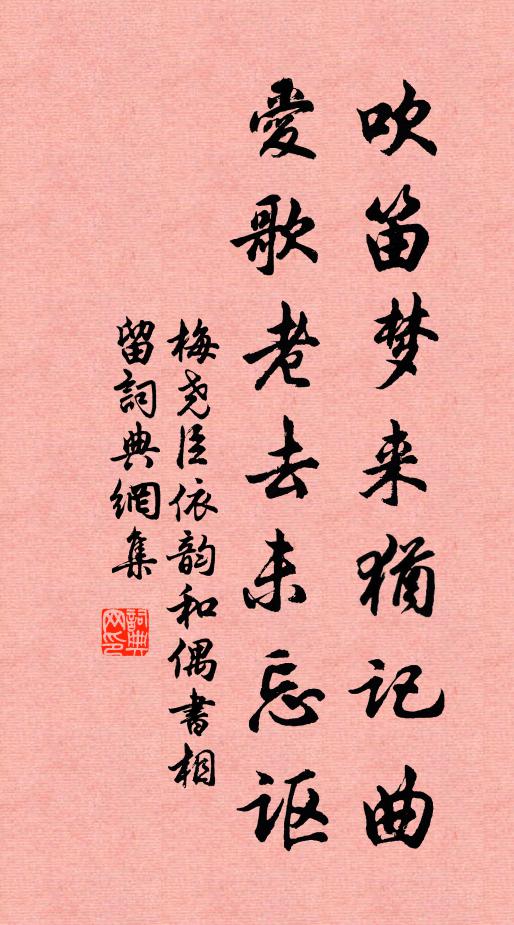 吹笛梦来犹记曲
爱歌老去未忘讴
梅尧臣依韵和偶书相
留詞典網集
詞典
网印